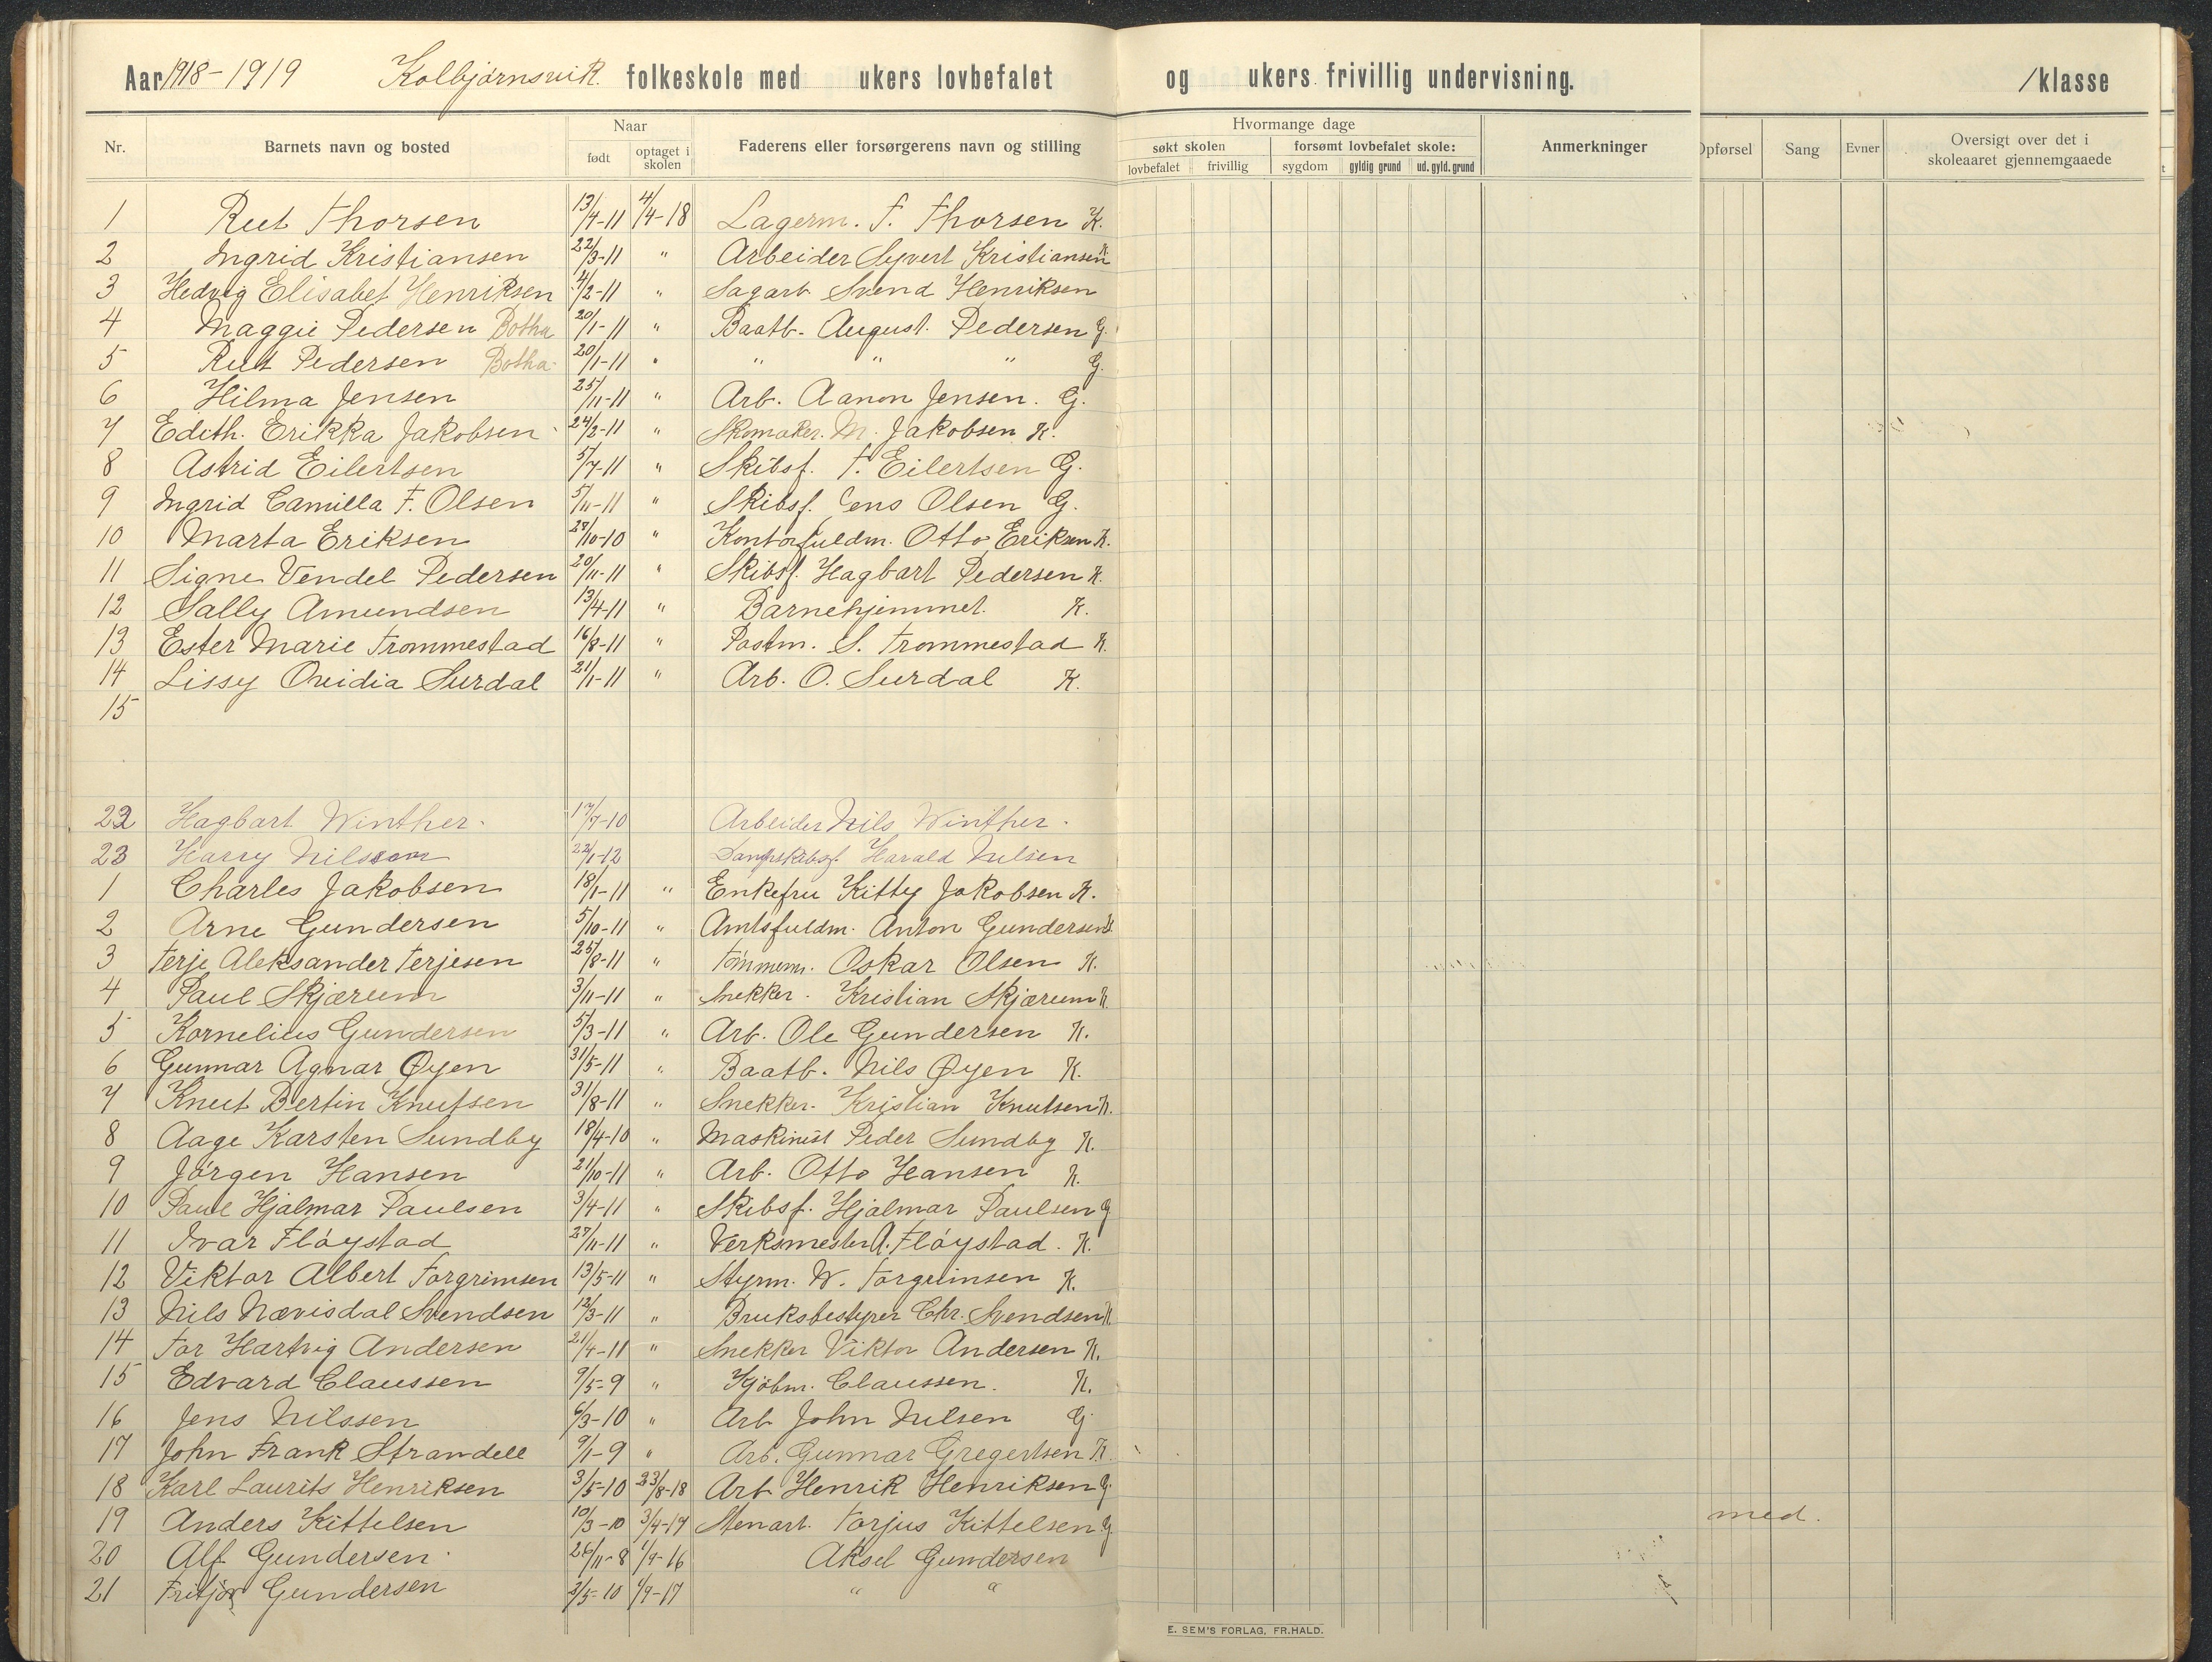 Aar 1918-1919 Kolbjørnsvik. folkeskole med ukers lovbefalet og ukers frivillig undervisning. /klasse
Nr. Barnets navn og bosted Naar født optaget i skolen Faderens eller forsørgerens navn og stilling Hvormange dage søkt skolen lovbefalet frivillig forsømt lovbefalet skole: sygdom gyldig grund ud. gyld. grund Anmerkninger Opførsel Sang Evner Oversigt over det i skoleaaret gjennemgaaede
1 Rut Thorsen 13/4-11 4/4-18 Lagerm. T. Thorsen K.
2 Ingrid Kristiansen 22/3-11 " Arbeider Syvert Kristiansen K.
3 Hedvig Elisabet Henriksen 4/2-11 " Sagarb Svend Henriksen
4 Maggie Pedersen Botha 20/1-11 " Baatb. August. Pedersen G.
5 Rut Pedersen Botha 20/1-11 " " " " G.
6 Hilma Jensen 25/11-11 " Arb. Aanon Jensen. G.
7 Edith. Erikka Jakobsen 24/2-11 " Skomaker. M. Jakobsen K.
8 Astrid Eilertsen 5/7-11 " Skibsf. T. Eilertsen G.
9 Ingrid Camilla F. Olsen 5/11-11 " Skibsf. Jens Olsen G.
10 Marta Eriksen 27/10-10 " Kontorfuldm. Otto Eriksen K.
11 Signe Vendel Pedersen 20/11-11 " Skibsf. Hagbart Pedersen K.
12 Sally Amundsen 13/4-11 " Barnehjemmet. K.
13 Ester Marie Trommestad 16/8-11 " Postm. S. Trommestad K.
14 Lissy Ovidia Surdal 21/1-11 " Arb. O. Surdal K.
15
22 Hagbart Winther. 17/7-10 Arbeider Nils Winther.
23 Harry Nilsson 22/1-12 Dampskibsf. Harald Nilsen
1 Charles Jakobsen 18/1-11 " Enkefru Kitty Jakobsen K.
2 Arne Gundersen 5/10-11 " Amtsfuldm. Anton Gundersen K.
3 Terje Aleksander Terjesen 25/8-11 " Tømmerm. Oskar Olsen K.
4 Paul Skjærum 3/11-11 " Snekker. Kristian Skjærum K.
5 Kornelius Gundersen 5/3-11 " Arb. Ole Gundersen K.
6 Gunnar Agnar Øyen 31/5-11 " Baatb. Nils Øyen K.
7 Knut Bertin Knutsen 31/8-11 " Snekker. Kristian Knutsen K.
8 Aage Karsten Sundby 18/4-10 " Maskinist Peder Sundby K.
9 Jørgen Hansen 21/10-11 " Arb. Otto Hansen K.
10 Paul Hjalmar Paulsen 3/4-11 " Skibsf. Hjalmar Paulsen G
11 Ivar Fløystad 27/11-11 " Verksmester A. Fløystad. K.
12 Viktor Albert Torgrimsen 13/5-11 " Styrm. W. Torgrimsen K.
13 Nils Nævisdal Svendsen 12/3-11 " Bruksbestyrer Chr. Svendsen K.
14 Tor Hartvig Andersen 21/4-11 " Snekker Viktor Andersen K.
15 Edvard Claussen 9/5-9 " Kjøbm. Claussen. K.
16 Jens Nilssen 6/3-10 " Arb John Nilsen G.
17 John Frank Strandell 9/1-9 " Arb. Gunnar Gregertsen K.
18 Karl Laurits Henriksen 3/5-10 23/8-18 Arb Henrik Henriksen G.
19 Anders Kittelsen 10/3-10 3/4-17 Stenarb. Torjus Kittelsen G. med.
20 Alf Gundersen. 26/11-8 1/9-16 Aksel Gundersen
21 Fritjof Gundersen 3/5-10 1/9-17 " "
E. SEM'S FORLAG, FR.HALD.